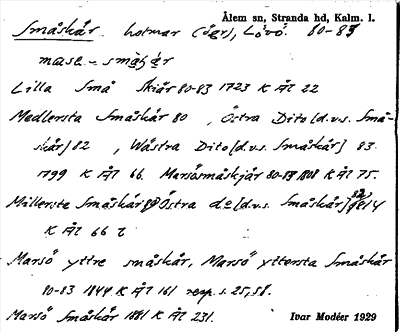 Ålem sn, Stranda hd, Kalm. l.
Småskär. holmar (öar), Lövö. 80-83
mask. - småʃǽr
Lilla Små Skiär 80-83 1723 K Ål 22
Medlersta Småskär 80, Östra Dito [d.v.s. Små-
skär] 82, Wästra Dito [d.v.s. Småskär] 83.
1799 K Ål 66. Marsösmåskjär 80-83 1808 K Ål 75.
Millersta Småskär 80 Östra do [d.v.s. Småskär] 82 1814
K Ål 66 c
Marsö yttre småskär, Marsö yttersta Småskär
80-83 1844 K Ål 161 resp. s. 25, 58.
Marsö Småskär 1881 K Ål 231.
Ivar Modéer 1929